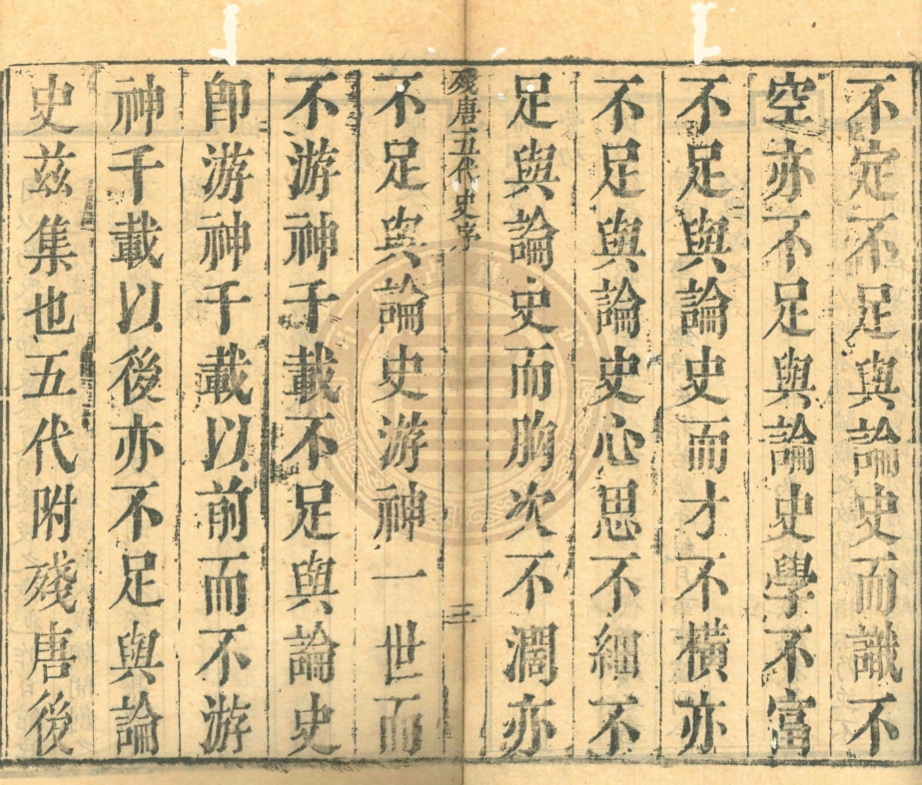 不定不足與論史而識不
空亦不足與論史學不富
不足與論史而才不橫亦
不足與論史心思不細不
足與論史而胸次不濶亦
殘唐五代史序
三
不足與論史游神一世而
不游神千載不足與論史
卽游神千載以前而不游
神千載以後亦不足與論
史茲集也五代附殘唐後